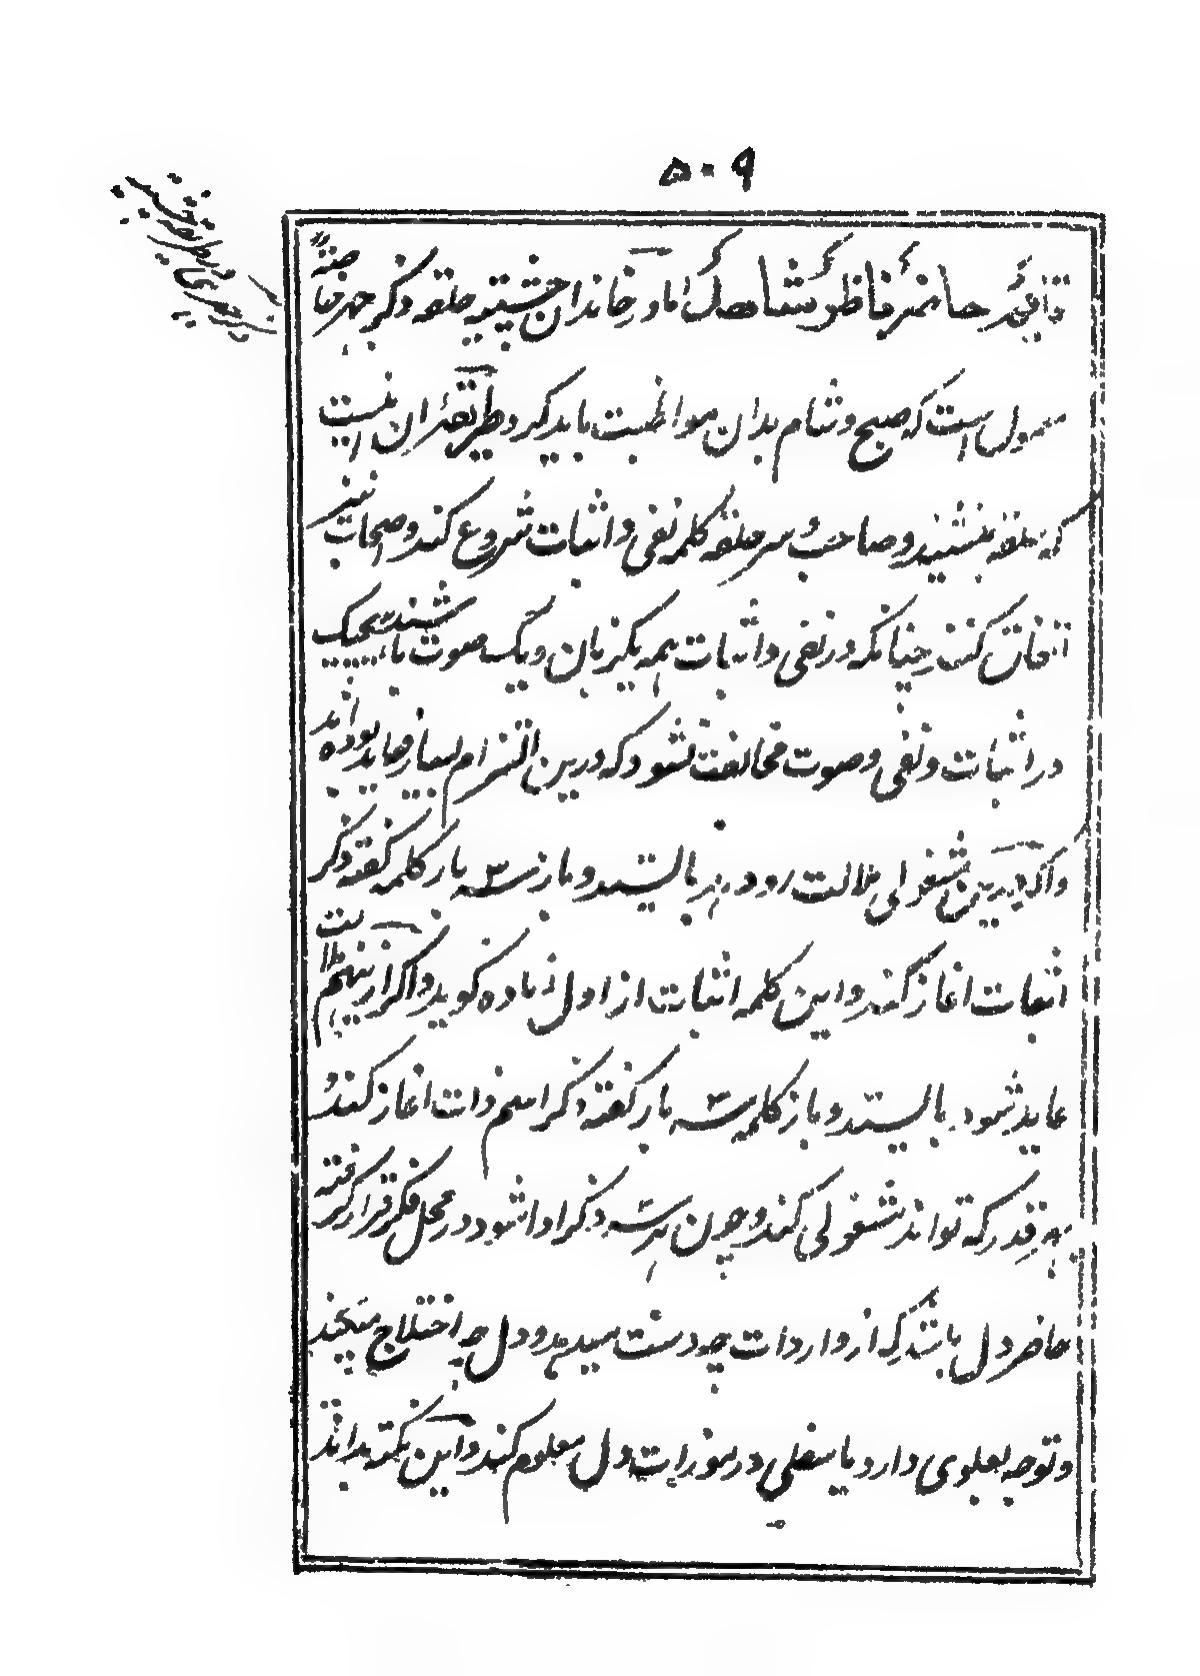 ۵۰۹
ذکر جهری در طریقه نقشبندیه
حاضر و ناظر و شاهدک اما در خاندان چشتیه حلقه ذکر جهر خفته
معمول است که صبح و شام بدان مواظبت باید کرد و طریقه آن اینست
که حلقه بنشیند و صاحب سر حلقه کلمه نفی و اثبات شروع کند و اصحاب نیز
اتفاق کنند چنانکه در نفی و اثبات همه یکزبان و یک صوت باشند
در اثبات و نفی و صوت مخالفت نشود که درین التزام بسیار فواید بوده اند
و اگر درین مشغولی ملالت رو دهد بایستد و باز سه بار کلمه گفته ذکر
اثبات آغاز کند و این کلمه اثبات از اول زیاده گوید و اگر ازینهم ملالت
عاید شود بایستد و باز کلمه سه بار گفته ذکر اسم ذات آغاز کند و
هر قدر که تواند مشغولی کند و چون هر سه ذکر ادا شود در محل فکر قرار گرفته
حاضر دل باشد که از واردات چه دست میدهد و دل چه اختلاج میکند
و توجه بعلوی دارد یا سفلی درینوارت دل معلوم کند و این نکته بداند